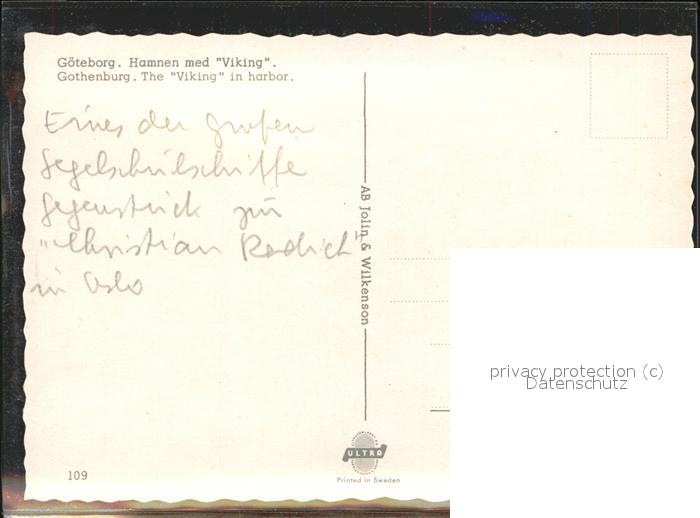 Göteborg. Hamnen med "Viking".
Gothenburg. The "Viking" in harbor.
Eines der großen
Segelschulschiffe
Gegenstück zur
"Christian Radich"
in Oslo
AB Jolin & Wilkenson
ULTRA
Printed in Sweden
109
privacy protection (c)
Datenschutz